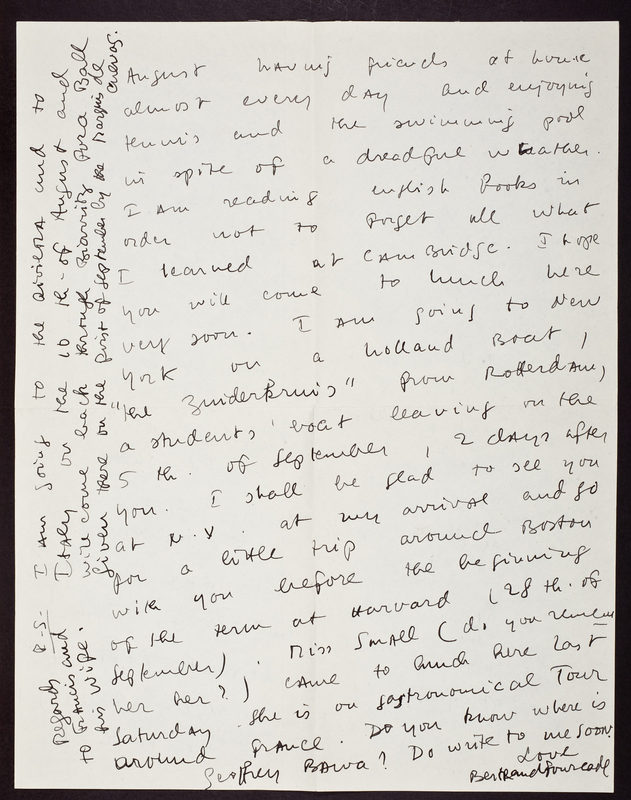 August having friends at house
almost every day and enjoying
tennis and the swimming pool
in spite of a dreadful weather.
I am reading english books in
order not to forget all what
I learned at Cambridge. I hope
you will come to lunch here
very soon. I am going to New
York on a holland Boat,
"the Zuiderkruis" from Rotterdam,
a students' boat leaving on the
5 th. of September, 2 days after
you. I shall be glad to see you
at N.Y. at my arrival and go
for a little trip around Boston
with you before the beginning
of the term at Harvard (28 th. of
September). Miss Small (do you remem
her her?) came to lunch here last
Saturday. She is on gastronomical Tour
around France. Do you know where is
Geoffrey Bawa? Do write to me soon.
Love
Bertrand Fourcade
P-S- I am going to the Riviera and to
Italy on the 10 th- of August and
will come back through Biarritz for a Ball
given there on the first of September by the Marquis de
Cuevas.
Regards
to Francis and
his wife.